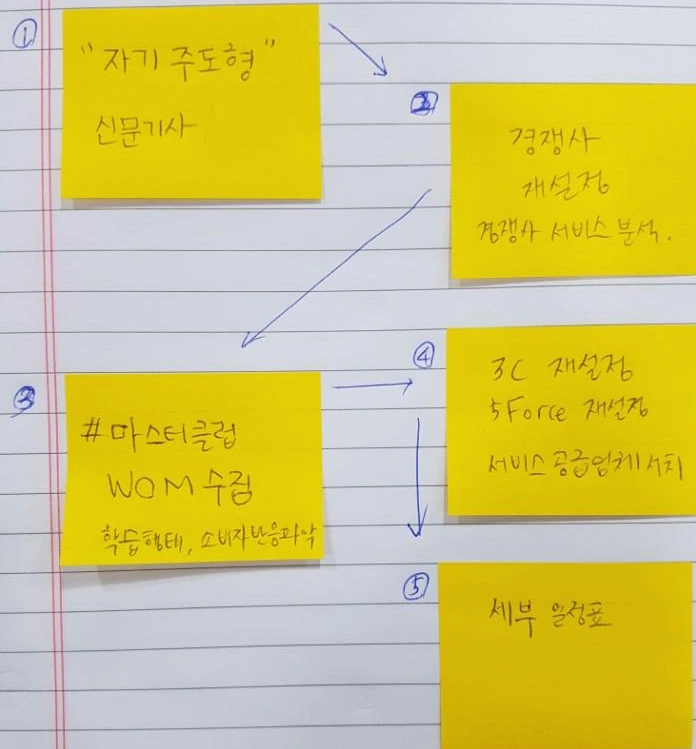 ①
"자기 주도형"
신문기사
②
경쟁사
재설정
경쟁사 서비스 분석.
③
#마스터클럽
WOM 수집
학습행태, 소비자반응파악
④
3C 재설정
5Force 재설정
서비스 공급업체 서치
⑤
세부 일정표